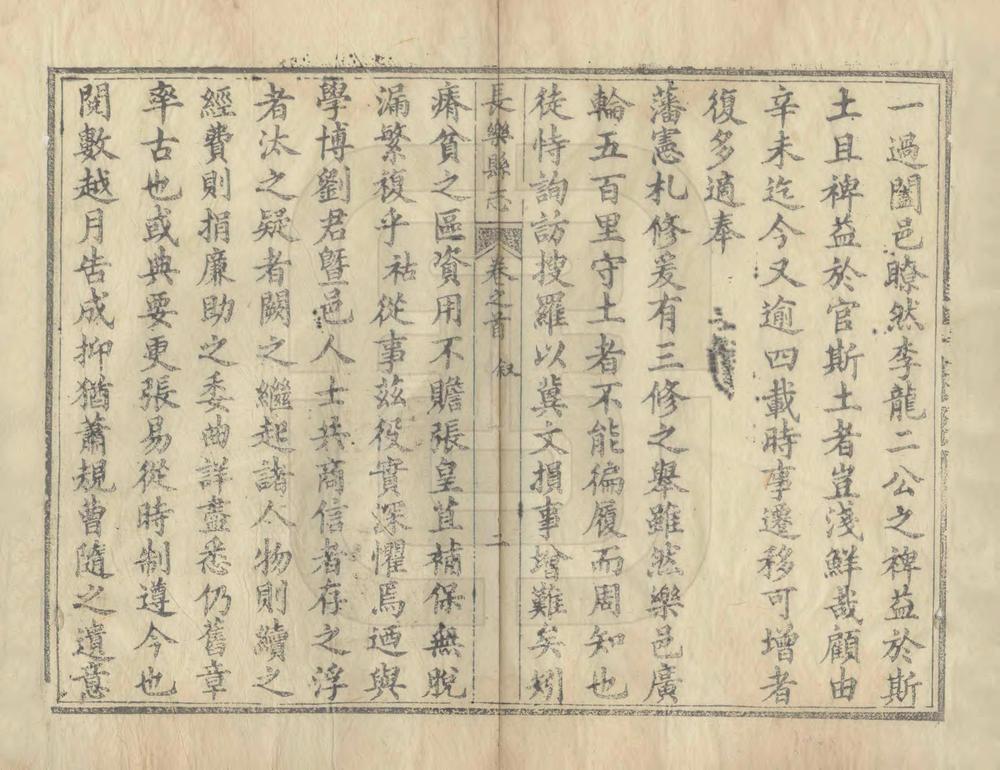 一過闔邑瞭然李龍二公之裨益於斯
土且裨益於官斯土者豈淺鮮哉顧由
辛未迄今又逾四載時事遷移可增者
復多適奉
藩憲札修爰有三修之舉雖然樂邑廣
輪五百里守土者不能徧履而周知也
徒恃詢訪搜羅以冀文損事增難矣矧
長樂縣志 卷之首 叙 二
瘠貧之區資用不贍張皇苴補保無脫
漏繁複乎祜從事兹役實深懼焉迺與
學博劉君曁邑人士共商信者存之浮
者汰之疑者闕之繼起諸人物則續之
經費則捐廉助之委曲詳盡悉仍舊章
率古也或典要更張易從時制遵今也
閱數越月告成抑猶蕭規曹隨之遺意